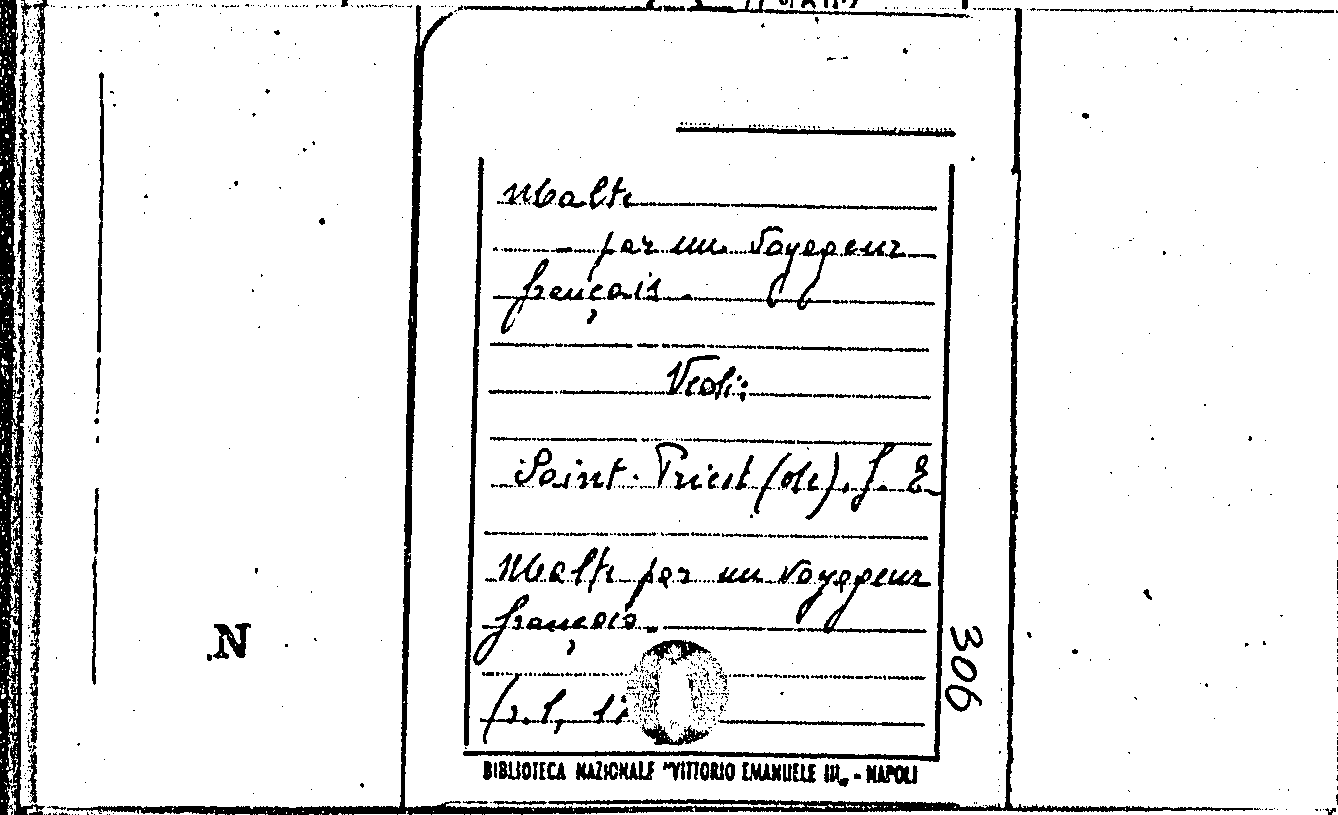 Malte
par un voyageur
français.
Vedi:
Saint-Priest (de), F. E.
Malte par un voyageur
français.
(s.l,
306
N
BIBLIOTECA NAZIONALE "VITTORIO EMANUELE III" - NAPOLI